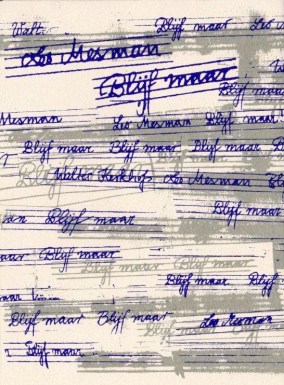 Walt. Blijf maar Leo M
Leo Mesman
Blijf maar
Mesman Leo Mesman Blijf maar
Blijf maar Blijf maar Blijf maar B
Blijf
Walter Kerkhofs Leo Mesman Bl
Blijf maar
an Blijf maar
aar Blijf maar
Blijf maar Blijf maar
Blijf maar Blijf
aar
Blijf maar Blijf maar Leo Mesman
Blijf maar